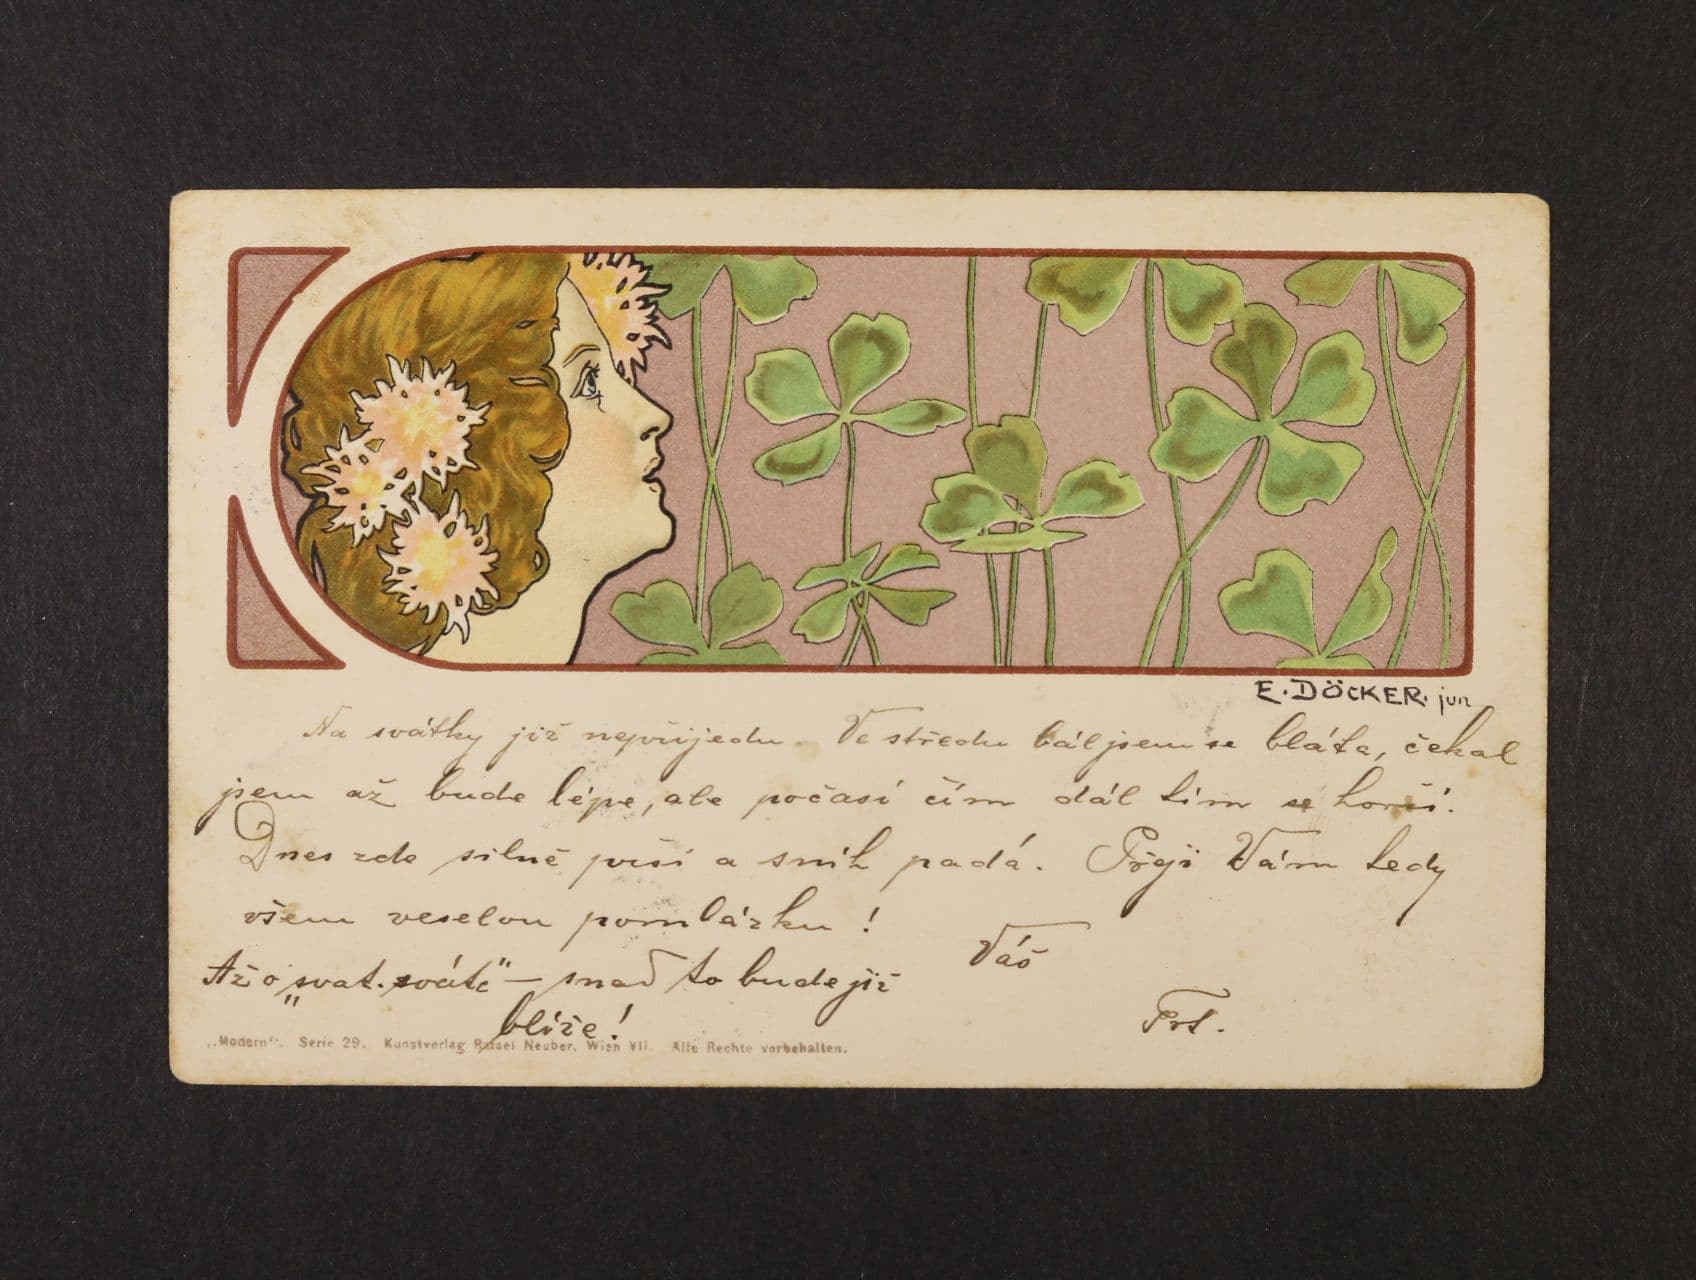 E. DÖCKER. jun
Na svátky již nepřijedu. Ve středu bál jsem se bláta, čekal
jsem až bude lépe, ale počasí čím dál tím se horší.
Dnes zde silně prší a sníh padá. Přeji Vám tedy
všem veselou pomlázku!
Váš
Až o „svat. sváté“ – snad to bude již
blíže!
Frt.
„Modern“. Serie 29. Kunstverlag Rafael Neuber, Wien VII. Alle Rechte vorbehalten.